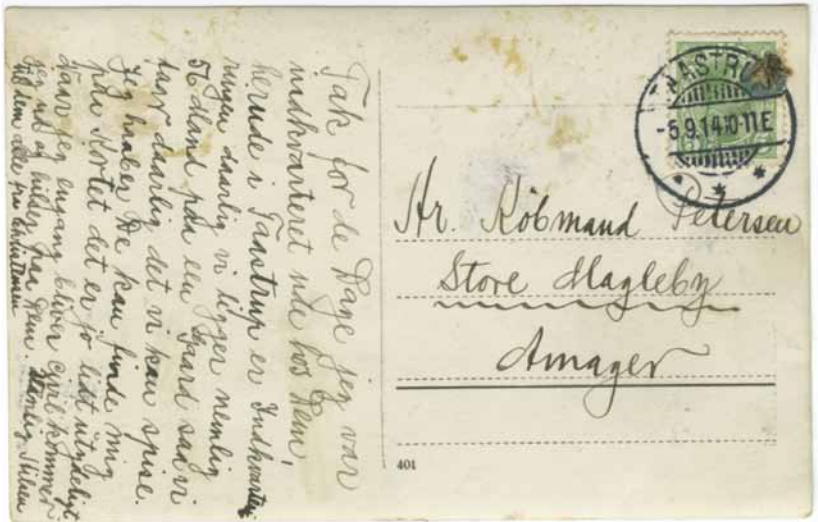 Tak for de Dage jeg var
indkvarteret ude hos Dem!
herude i Taastrup er Indkvarte-
ringen daarlig vi ligger nemlig
56 Mand paa en Gaard saa vi
tager daarlig det vi kan spise.
Jeg haaber De kan finde mig
paa Kortet det er jo lidt utydeligt
Naar jeg engang bliver Civil kommer
jeg ud og hilser paa Dem. Hilsen
til dem alle fra
TAASTRUP
-5.9.14 10-11 E
Hr. Købmand Petersen
Store Magleby
Amager
401